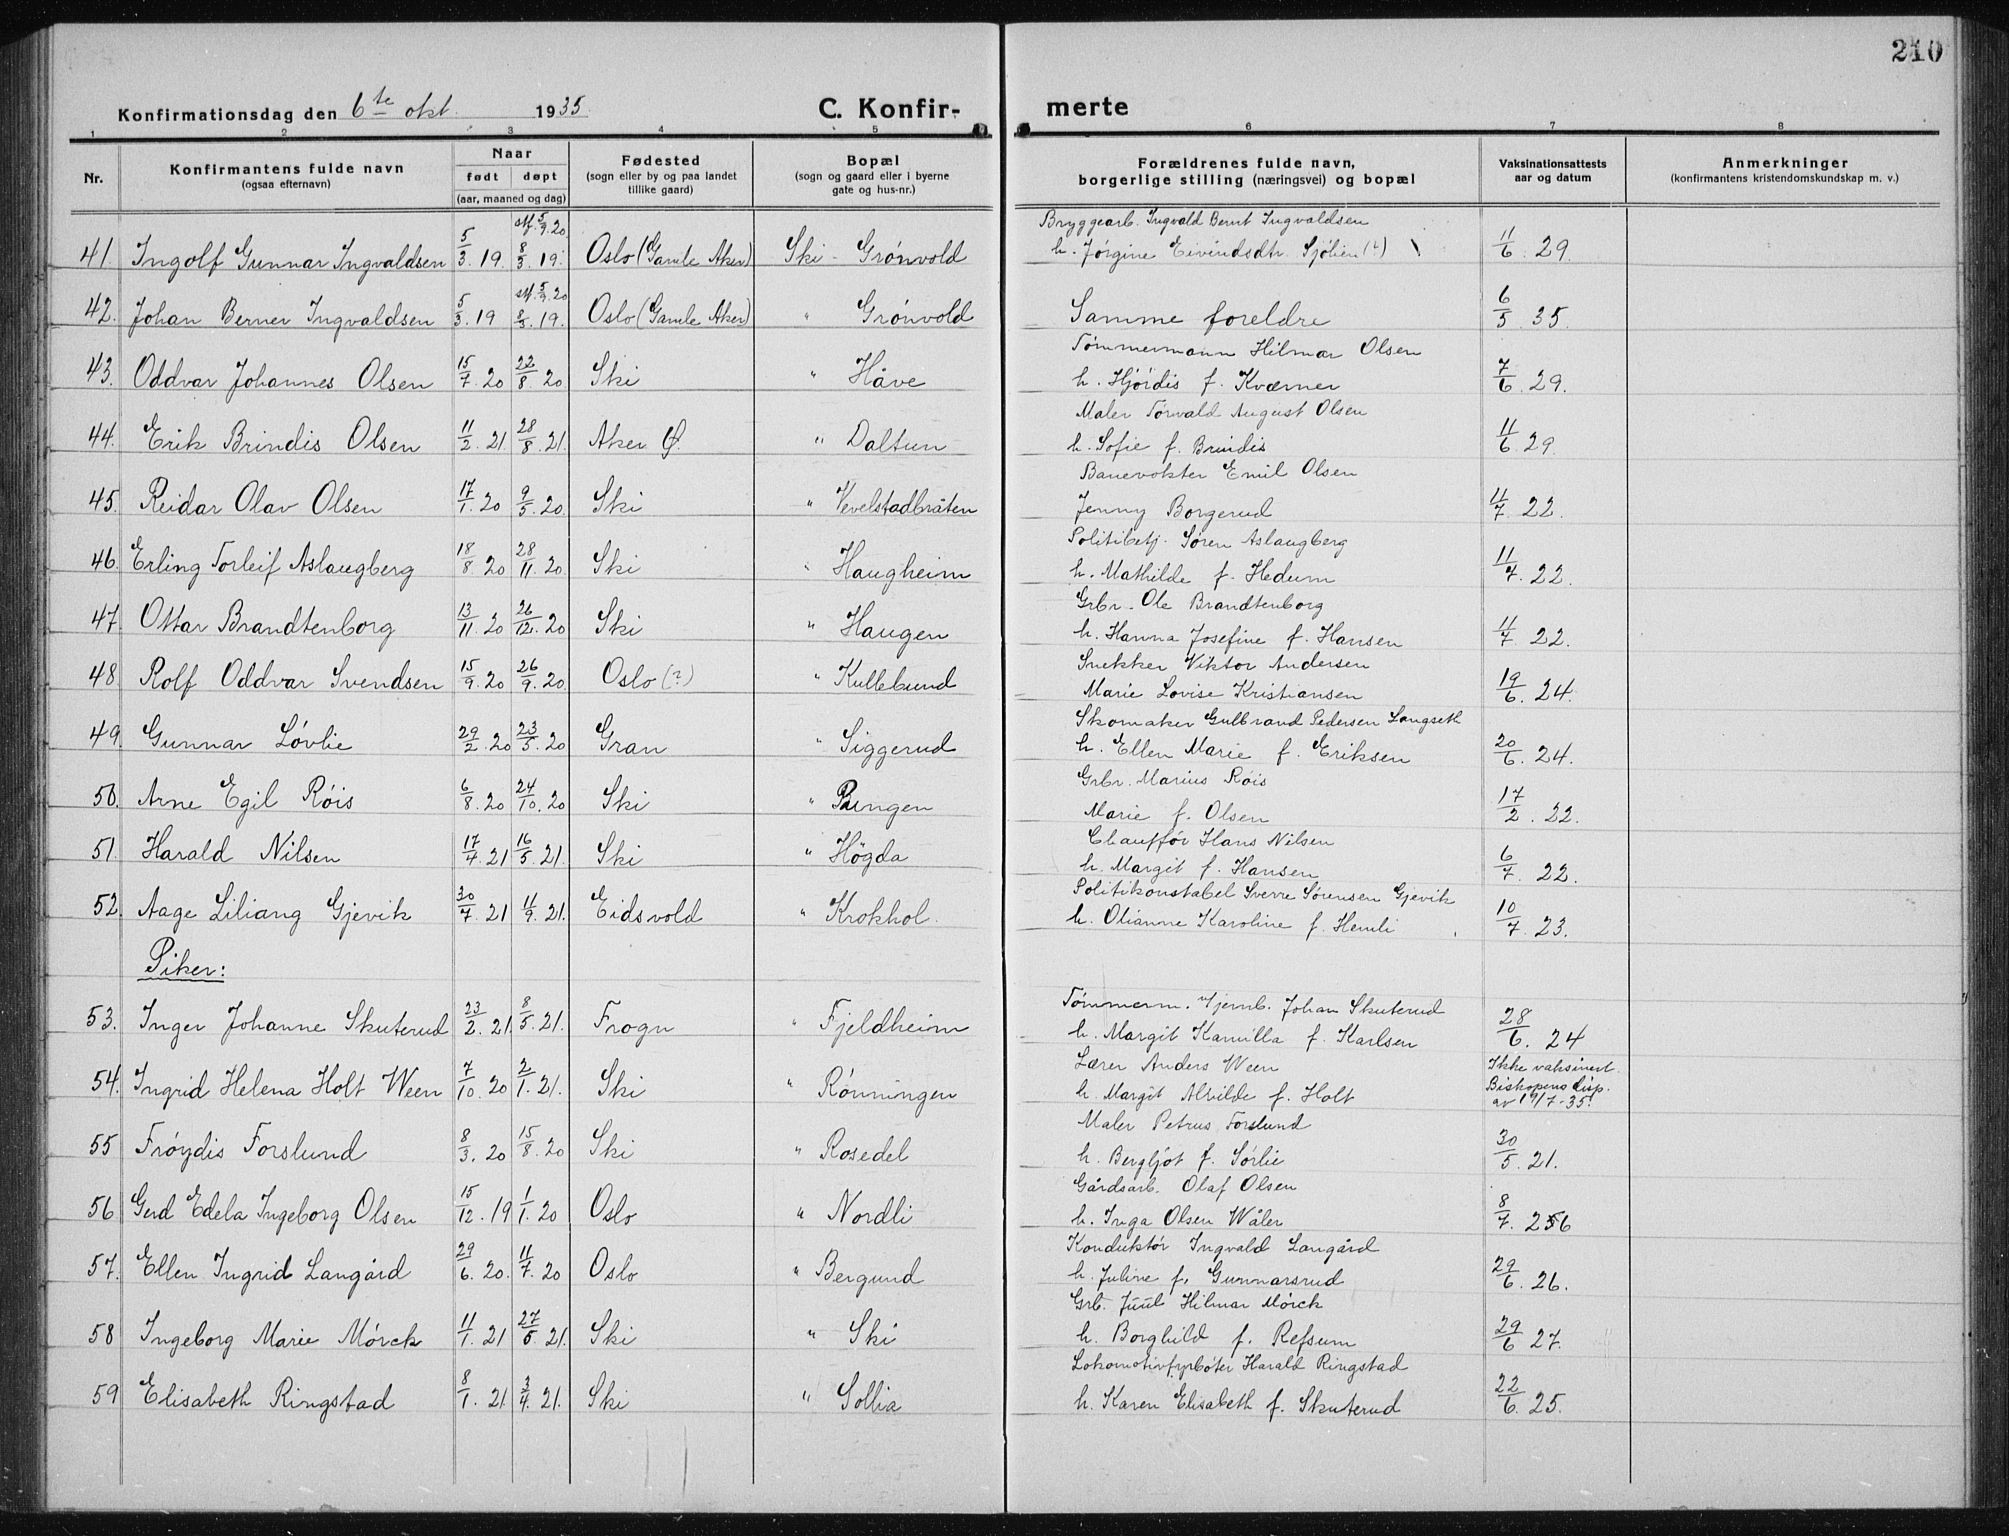 210
Konfirmationsdag den 6te okt. 1935.
C. Konfir-
merte
1 2 3 4 5 6 7 8
Nr.
Konfirmantens fulde navn
(ogsaa efternavn)
Naar
født døpt
(aar, maaned og dag)
Fødested
(sogn eller by og paa landet
tillike gaard)
Bopæl
(sogn og gaard eller i byerne
gate og hus-nr.)
Forældrenes fulde navn,
borgerlige stilling (næringsvei) og bopæl
Vaksinationsattests
aar og datum
Anmerkninger
(konfirmantens kristendomskundskap m. v.)
stf. 5/9. 20 Bryggearb. Ingvald Bernt Ingvaldsen
41. Ingolf Gunnar Ingvaldsen 5/3. 19. 8/3. 19. Oslo (Gamle Aker) Ski - Grönvold h. Jörgine Eivindsdtr. Sjölien (?) 11/6. 29.
stf. 5/9. 20
42. Johan Berner Ingvaldsen 5/3. 19 8/3. 19. Oslo (Gamle Aker) " Grönvold Samme foreldre 6/5. 35.
Tömmermann Hilmar Olsen
43. Oddvar Johannes Olsen 15/7. 20 22/8. 20 Ski " Håve h. Hjördis f. Kværner 7/6. 29.
Maler Torvald August Olsen
44. Erik Brindis Olsen 11/2. 21. 28/8. 21. Aker Ø. " Daltun h. Sofie f. Brindis 11/6. 29.
Banevokter Emil Olsen
45. Reidar Olav Olsen 17/1. 20 9/5. 20. Ski " Vevelstadbråten Jenny Borgerud 11/7. 22.
Politibetj. Sören Aslaugberg
46. Erling Torleif Aslaugberg 18/8. 20 28/11. 20. Ski " Haugheim h. Mathilde f. Hedum 11/7. 22.
Grbr. Ole Brandtenborg
47. Ottar Brandtenborg 13/11. 20 26/12. 20 Ski " Haugen h. Hanna Josefine f. Hansen 11/7. 22.
Snekker Viktor Andersen
48. Rolf Oddvar Svendsen 15/9. 20 26/9. 20. Oslo (?) " Kullebund Marie Lovise Kristiansen 19/6. 24.
Skomaker Gulbrand Pedersen Langseth
49. Gunnar Lövlie 29/2. 20 23/5. 20 Gran " Siggerud h. Ellen Marie f. Eriksen 20/6. 24.
Grbr. Marius Röis
50. Arne Egil Röis 6/8. 20 24/10. 20 Ski " Bungen Marie f. Olsen 17/2. 22.
Chauffør Hans Nilsen
51. Harald Nilsen 17/4. 21 16/5. 21. Ski " Högda h. Margit f. Hansen 6/7. 22.
Politikonstabel Sverre Sörensen Gjevik
52. Aage Liliang Gjevik 30/7. 21 11/9. 21. Eidsvold " Krokhol. h. Olianne Karoline f. Hemli 10/7. 23.
Piker:
Tömmerm. Hjemb. Johan Skuterud
53. Inger Johanne Skuterud 23/2. 21. 8/5. 21. Frogn " Fjeldheim h. Margit Kamilla f. Karlsen 28/6. 24
Lærer Anders Ween Ikke vaksinert.
54. Ingrid Helena Holt Ween 7/10. 20 2/1. 21. Ski " Rönningen h. Margit Alvilde f. Holt Biskopens disp.
av 19/7-35.
Maler Petrus Forslund
55 Fröydis Forslund 8/3. 20 15/8. 20 Ski " Rosedel h. Bergljot f. Sörlie 30/5. 21.
Gårdsarb. Olaf Olsen
56 Gerd Edela Ingeborg Olsen 15/12. 19 1/1. 20 Oslo " Nordli h. Inga Olsen Wåler 8/7. 26
Konduktör Ingvald Langård
57. Ellen Ingrid Langård 29/6. 20. 11/7. 20 Oslo " Bergund h. Juline f. Gunnarsrud 29/6. 26.
Grb. Juul Hilmar Mörck
58 Ingeborg Marie Mörck 11/1. 21 27/5. 21. Ski " Ski h. Borghild f. Refsum 29/6 27.
Lokomotivfyrböter Harald Ringstad
59 Elisabeth Ringstad 8/1. 21. 3/4. 21. Ski " Sollia h. Karen Elisabeth f. Skuterud 22/6. 25.